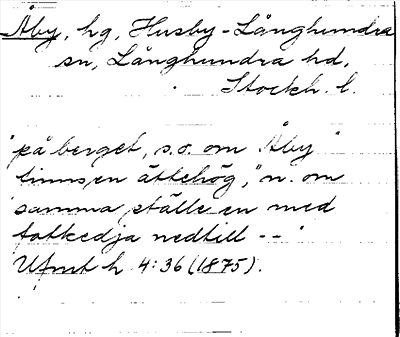 Åby, hg, Husby-Långhundra
sn, Långhundra hd,
Stockh. l.
"på berget, s.o. om Åby"
finns en ättehög, "n. om
samma ställe en med
fotkedja nedtill --"
Ufmt h 4:36 (1875).